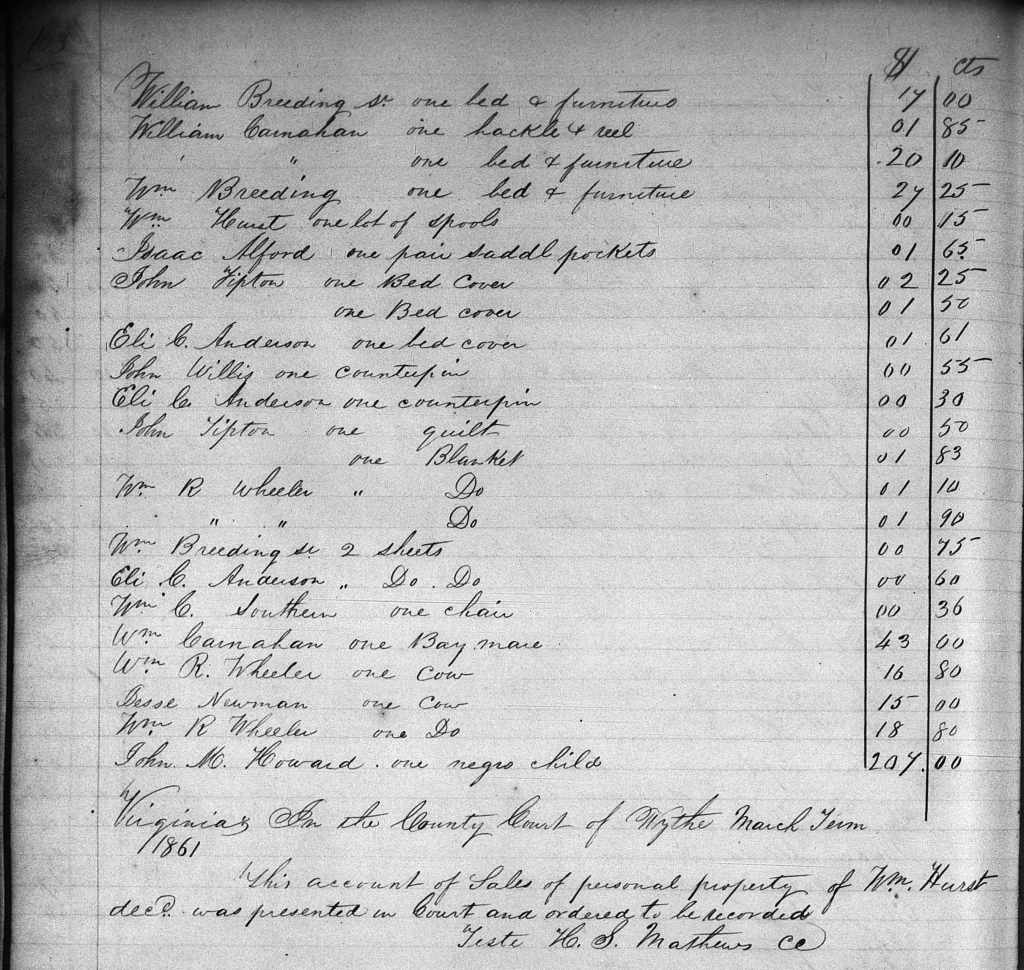 $ cts
William Breeding sr one bed & furniture 17 00
William Carnahan one hackle & reel 01 85
" " one bed & furniture 20 10
Wm Breeding one bed & furniture 27 25
Wm Hurst one lot of spools 00 15
Isaac Alford one pair saddl pockets 01 65
John Tipton one Bed Cover 02 25
one Bed cover 01 50
Eli C. Anderson one bed cover 01 61
John Willis one counterpin 00 55
Eli C. Anderson one counterpin 00 30
John Tipton one quilt 00 50
one Blanket 01 83
Wm R Wheeler " Do 01 10
" " Do 01 90
Wm Breeding sr 2 sheets 00 75
Eli C. Anderson " Do. Do 00 60
Wm C. Southern one chair 00 36
Wm Carnahan one Bay mare 43 00
Wm R. Wheeler one Cow 16 80
Jesse Newman one Cow 15 00
Wm R Wheeler one Do 18 80
John M. Howard one negro child 207.00
Virginia, In the County Court of Wythe March Term
1861
This account of Sales of personal property of Wm. Hurst
decd. was presented in Court and ordered to be recorded
Teste H. S. Mathews CC